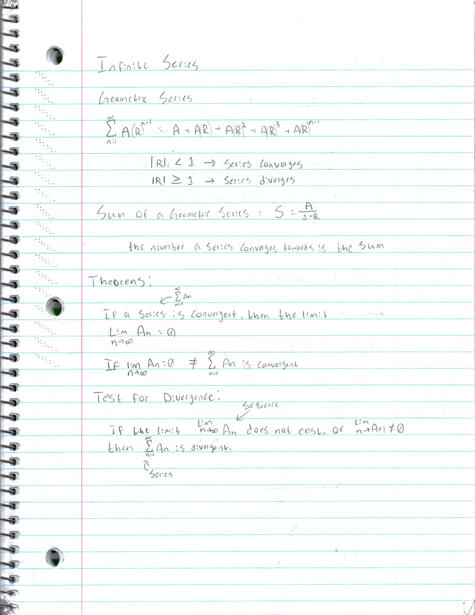 Infinite Series
Geometric Series
∞∑n=1 A(R)ⁿ⁻¹ = A + A(R) + A(R)² + A(R)³ + A(R)ⁿ⁻¹
|R| < 1 → Series converges
|R| ≥ 1 → Series diverges
Sum of a Geometric Series: S = A/(1-R)
the number a series converges towards is the sum
Theorems:
∞∑n=1 An
If a Series is convergent, then the limit
Lim n→∞ An = 0
If lim n→∞ An = 0 ≠ ∞∑n=1 An is convergent
Test for Divergence:
Sequence
If the limit Lim n→∞ An does not exist, or Lim n→ An ≠ 0
then ∞∑n=1 An is divergent.
Series